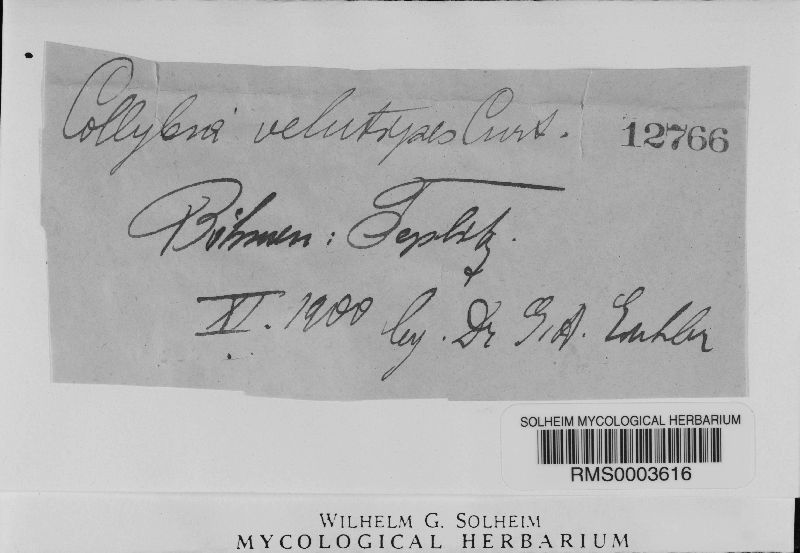 Collybia velutipes Curt.
12766
Böhmen : Teplitz.
XI. 1900 leg. Dr G. A.
SOLHEIM MYCOLOGICAL HERBARIUM
RMS0003616
WILHELM G. SOLHEIM
MYCOLOGICAL HERBARIUM